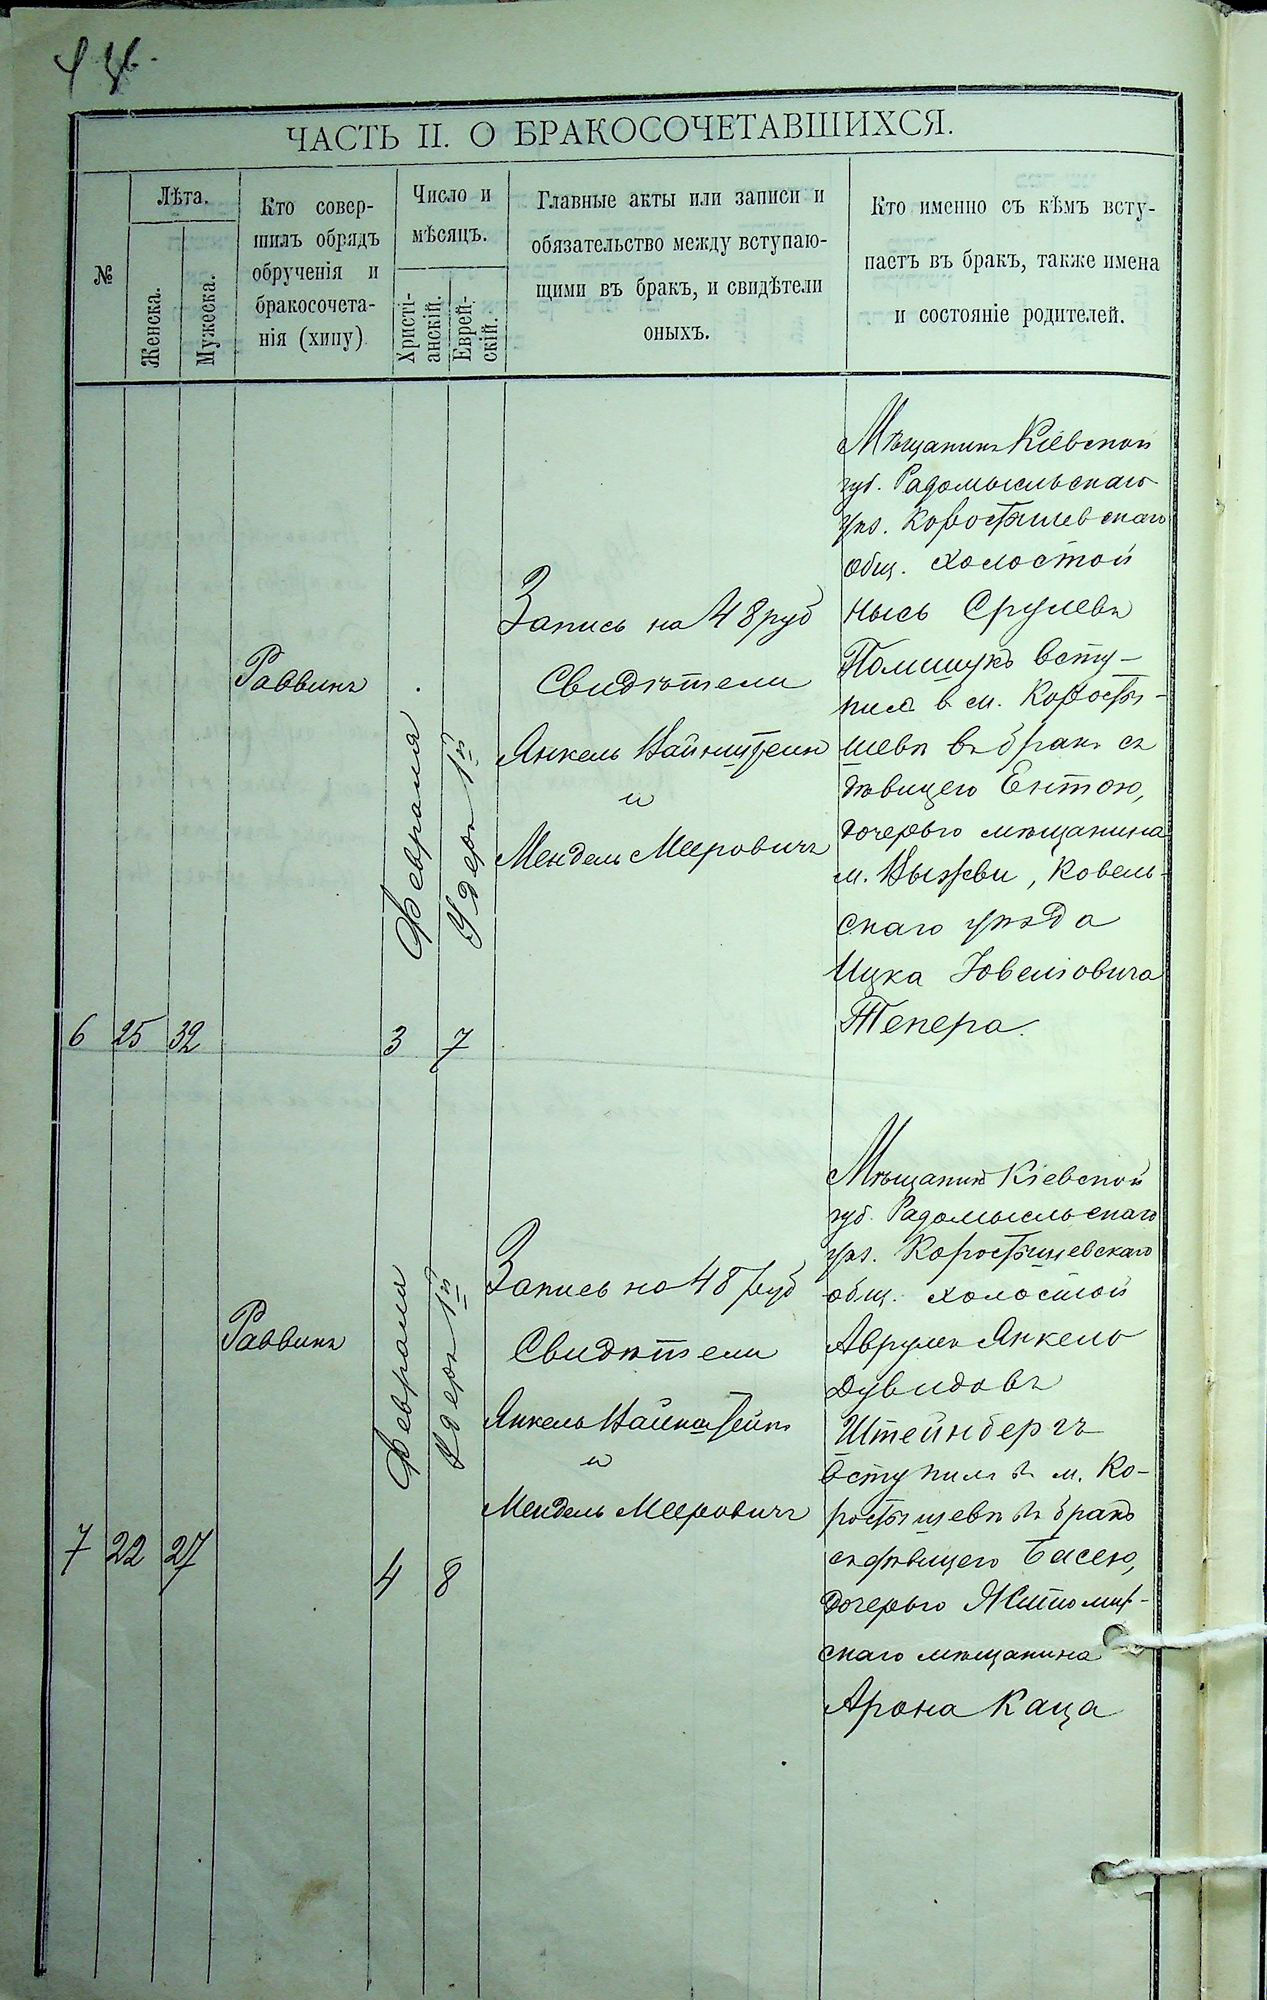 ЧАСТЬ II. О БРАКОСОЧЕТАВШИХСЯ.
№
Лѣта.
Женска.
Мужеска.
Кто совер-
шилъ обрядъ
обрученія и
бракосочета-
нія (хипу)
Число и
мѣсяцъ.
Христі-
анскій.
Еврей-
скій.
Главные акты или записи и
обязательство между вступаю-
щими въ бракъ, и свидѣтели
оныхъ.
Кто именно съ кѣмъ всту-
паетъ въ бракъ, также имена
и состояніе родителей.
6
25
32
Раввинъ
Февраля
3
Удеръ 1й
7
Запись на 48 руб
Свидѣтели
Янкель Вайнштейн
и
Мендель Мееровичъ
Мѣщанинъ Кіевской
губ. Радомысльскаго
уѣз. Коростышевскаго
общ. холостой
Нысь Срулевъ
Полищукъ всту-
пилъ в м. Корость-
шевѣ въ бракъ съ
дѣвицею Ентою,
дочерью мѣщанина
м. Выжвы, Ковель-
скаго уѣзда
Ицка Іовелiовича
Тепера.
7
22
27
Раввинъ
Февраля
4
Удеръ 1й
8
Запись на 48 руб
Свидѣтели
Янкель Вайнштейнъ
и
Мендель Мееровичъ
Мѣщанинъ Кіевской
губ. Радомысльскаго
уѣз. Коростышевскаго
общ. холостой
Аврумъ Янкель
Дувидовъ
Штейнбергъ
вступилъ въ м. Ко-
ростышевѣ въ бракъ
съ дѣвицею Басею,
дочерью Житомир-
скаго мѣщанина
Арона Каца